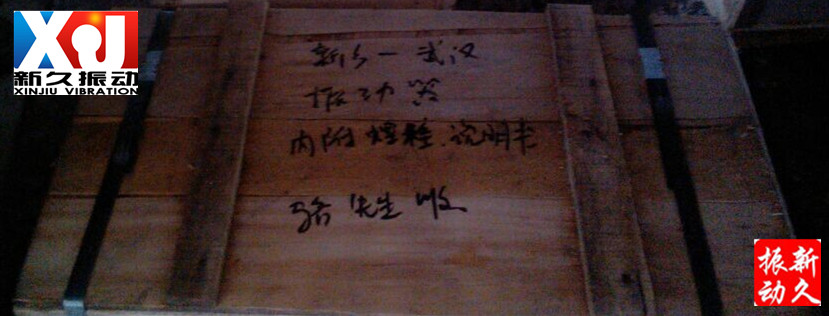 新久振动
XINJIU VIBRATION
新乡一武汉
振动器
内附焊接说明书
骆先生收
新久
振动